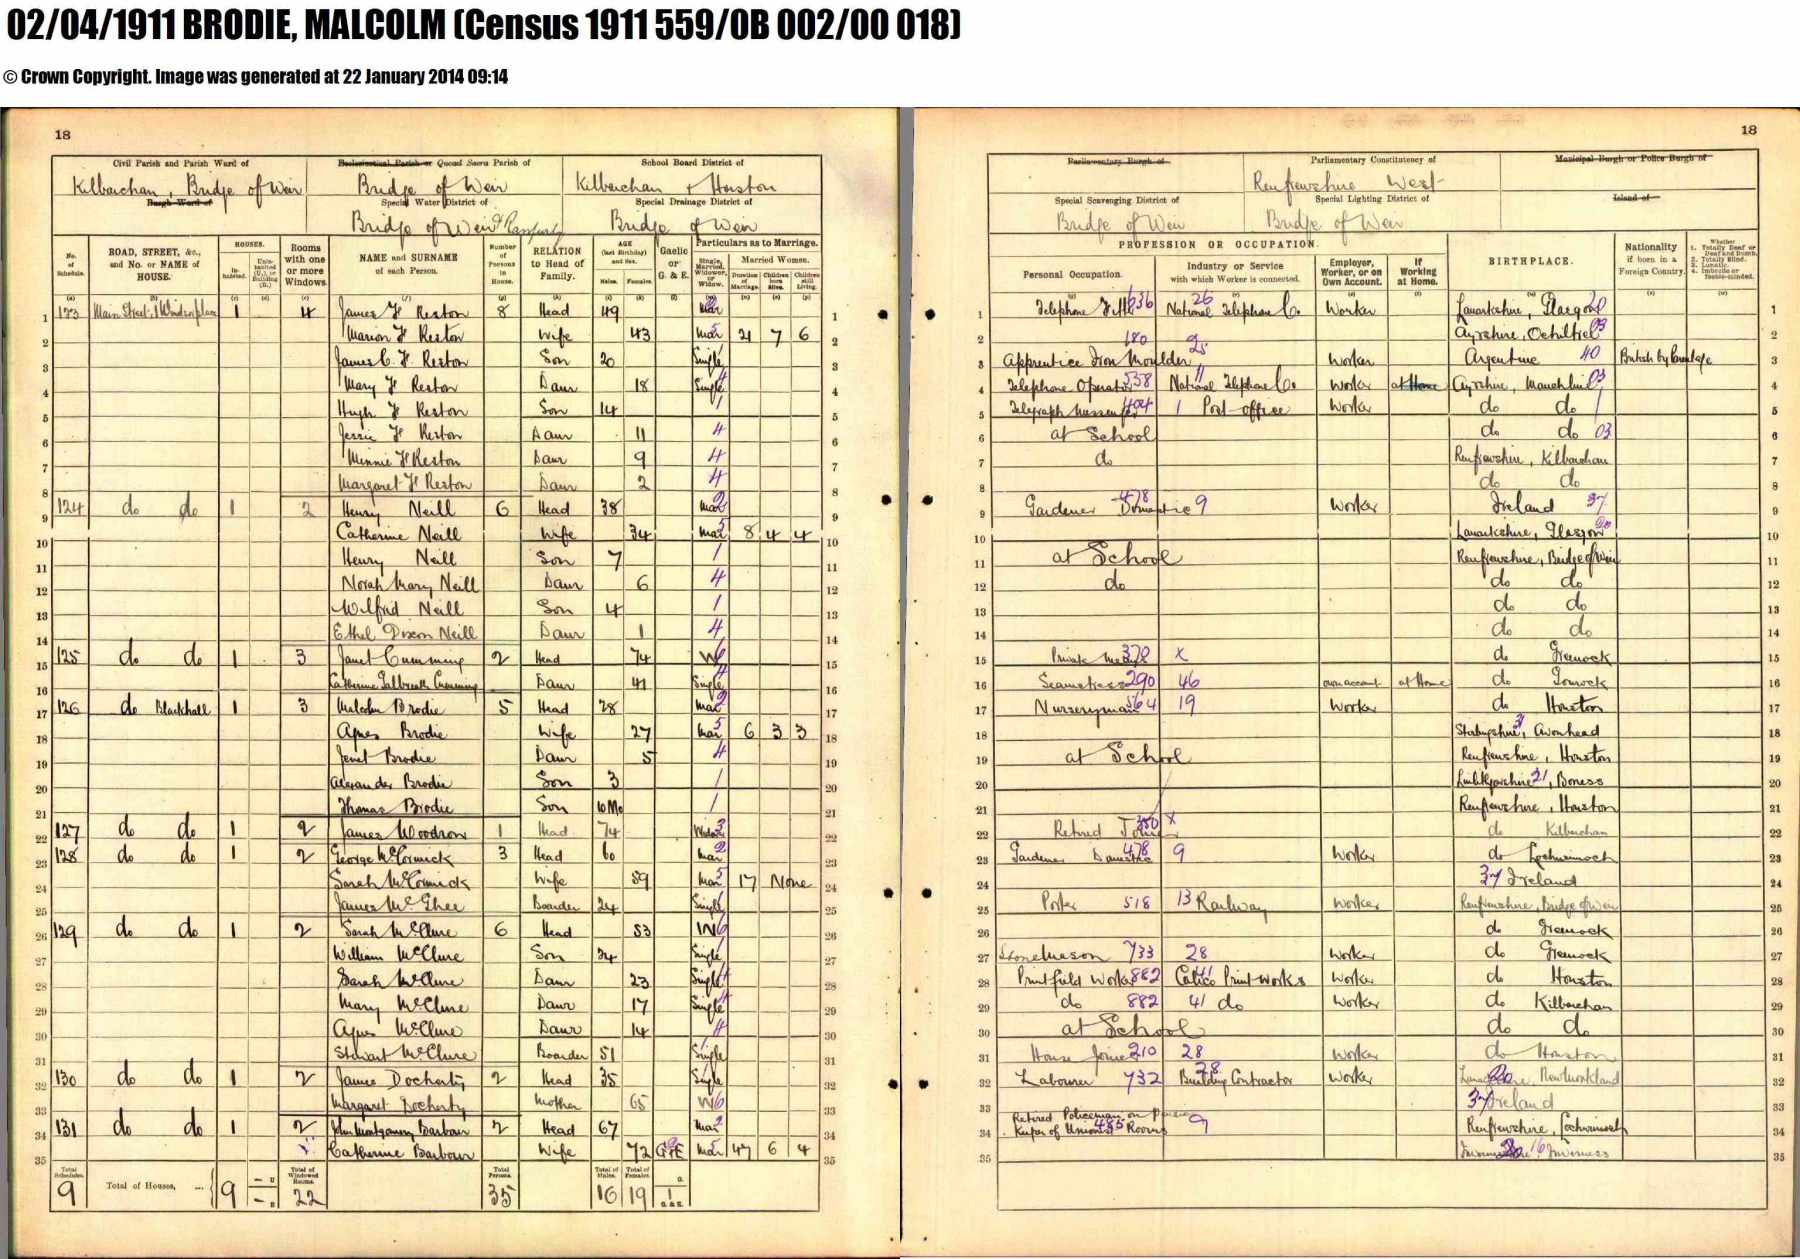 02/04/1911 BRODIE, MALCOLM (Census 1911 559/0B 002/00 018)
© Crown Copyright. Image was generated at 22 January 2014 09:14
18
Civil Parish and Parish Ward of Ecclesiastical Parish or Quoad Sacra Parish of School Board District of
Kilbarchan, Bridge of Weir Bridge of Weir Kilbarchan + Houston
Burgh Ward of Special Water District of Special Drainage District of
Bridge of Weir Bridge of Weir
No. of Schedule. ROAD, STREET, &c., and No. or NAME of HOUSE. HOUSES. Inhabited. Uninhabited (U.), or Building (B.). Rooms with one or more Windows. NAME and SURNAME of each Person. Number of Persons in House. RELATION to Head of Family. AGE (last Birthday) and Sex. Males. Females. Gaelic or G. & E. Particulars as to Marriage. Single, Married, Widower, or Widow. Married Women. Duration of Marriage. Children born Alive. Children still Living.
1 123 Main Street, 1 Windsor place 1 4 James F Reston 8 Head 49 Mar 1
2 Marion F Reston Wife 43 Mar 21 7 6 2
3 James C. F. Reston Son 20 Single 3
4 Mary F Reston Daur 18 Single 4
5 Hugh F Reston Son 14 1 5
6 Jessie F Reston Daur 11 4 6
7 Minnie F Reston Daur 9 4 7
8 Margaret F Reston Daur 2 4 8
9 124 do do 1 2 Henry Neill 6 Head 38 Mar 2 9
10 Catherine Neill Wife 34 Mar 5 8 4 4 10
11 Henry Neill Son 7 1 11
12 Norah Mary Neill Daur 6 4 12
13 Wilfred Neill Son 4 1 13
14 Ethel Dixon Neill Daur 1 4 14
15 125 do do 1 3 Janet Cumming 2 Head 74 W 6 15
16 Catherine Galbreath Cumming Daur 41 Single 4 16
17 126 do Blackhall 1 3 Malcolm Brodie 5 Head 28 Mar 2 17
18 Agnes Brodie Wife 27 Mar 5 6 3 3 18
19 Janet Brodie Daur 5 4 19
20 Alexander Brodie Son 3 1 20
21 Thomas Brodie Son 10 Mo 1 21
22 127 do do 1 2 James Woodrow 1 Head 74 Widr 3 22
23 128 do do 1 2 George McCormick 3 Head 60 Mar 2 23
24 Sarah McCormick Wife 59 Mar 5 17 None 24
25 James McGhee Boarder 24 Single 1 25
26 129 do do 1 2 Sarah McClure 6 Head 53 W 6 26
27 William McClure Son 24 Single 1 27
28 Sarah McClure Daur 23 Single 4 28
29 Mary McClure Daur 17 Single 4 29
30 Agnes McClure Daur 14 4 30
31 Stewart McClure Boarder 51 Single 1 31
32 130 do do 1 2 James Docherty 2 Head 35 Single 1 32
33 Margaret Docherty Mother 65 W 6 33
34 131 do do 1 2 John Montgomery Barbour 2 Head 67 Mar 2 34
35 Catherine Barbour Wife 72 G&E Mar 5 47 6 4 35
Total Schedules. 9 Total of Houses, ... 9 – U – B Total of Windowed Rooms. 22 Total Persons. 35 Total of Males. 16 Total of Females. 19 G. 1 G. & E.
18
Parliamentary Burgh of Parliamentary Constituency of Municipal Burgh or Police Burgh of
Renfrewshire West
Special Scavenging District of Special Lighting District of Island of
Bridge of Weir Bridge of Weir
PROFESSION OR OCCUPATION. Personal Occupation. Industry or Service with which Worker is connected. Employer, Worker, or on Own Account. If Working at Home. BIRTHPLACE. Nationality if born in a Foreign Country. Whether 1. Totally Deaf or Deaf and Dumb. 2. Totally Blind. 3. Lunatic. 4. Imbecile or feeble-minded.
1 Telephone Fitter 636 26 National Telephone Co. Worker Lanarkshire, Glasgow 20 1
2 Ayrshire, Ochiltree 03 2
3 Apprentice Iron Moulder 180 25 Worker Argentine 40 British by Parentage 3
4 Telephone Operator 538 11 National Telephone Co. Worker at Home Ayrshire, Mauchline 03 4
5 Telegraph Messenger 404 1 Post-office Worker do do 5
6 at School do do 03 6
7 do Renfrewshire, Kilbarchan 7
8 do do 8
9 Gardener Domestic 478 9 Worker Ireland 37 9
10 Lanarkshire, Glasgow 20 10
11 at School Renfrewshire, Bridge of Weir 11
12 do do do 12
13 do do 13
14 do do 14
15 Private Means 370 x do Greenock 15
16 Seamstress 290 46 own account at Home do Gourock 16
17 Nurseryman 564 19 Worker do Houston 17
18 Stirlingshire, Avonhead 31 18
19 at School Renfrewshire, Houston 19
20 Linlithgowshire 21, Boness 20
21 Renfrewshire, Houston 21
22 Retired Joiner 350 x do Kilbarchan 22
23 Gardener Domestic 478 9 Worker do Lochwinnoch 23
24 37 Ireland 24
25 Porter 518 13 Railway Worker Renfrewshire, Bridge of Weir 25
26 do Greenock 26
27 Stonemason 733 28 Worker do Greenock 27
28 Printfield Worker 882 41 Calico Print Works Worker do Houston 28
29 do 882 41 do Worker do Kilbarchan 29
30 at School do do 30
31 House Joiner 210 28 Worker do Houston 31
32 Labourer 732 28 Building Contractor Worker Lanarkshire, New Monkland 32
33 37 Ireland 33
34 Retired Policeman on Pension Keeper of Unionist Rooms 485 9 Renfrewshire, Lochwinnoch 34
35 16 Inverness 35